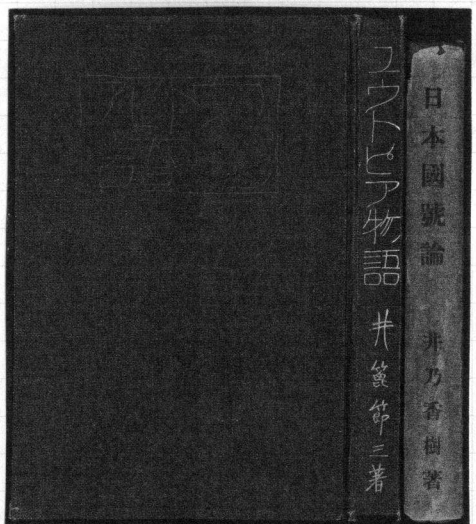 ユウトピア物語 井箆節三著
日本國號論 井乃香樹著